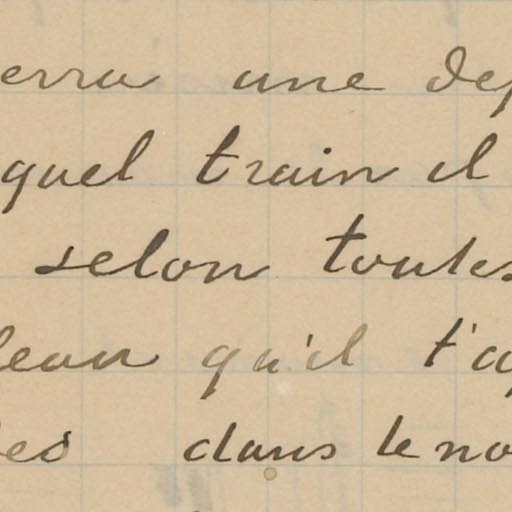 erra une dep
quel train il
selon toutes
leau qu'il t'ap
les dans le no